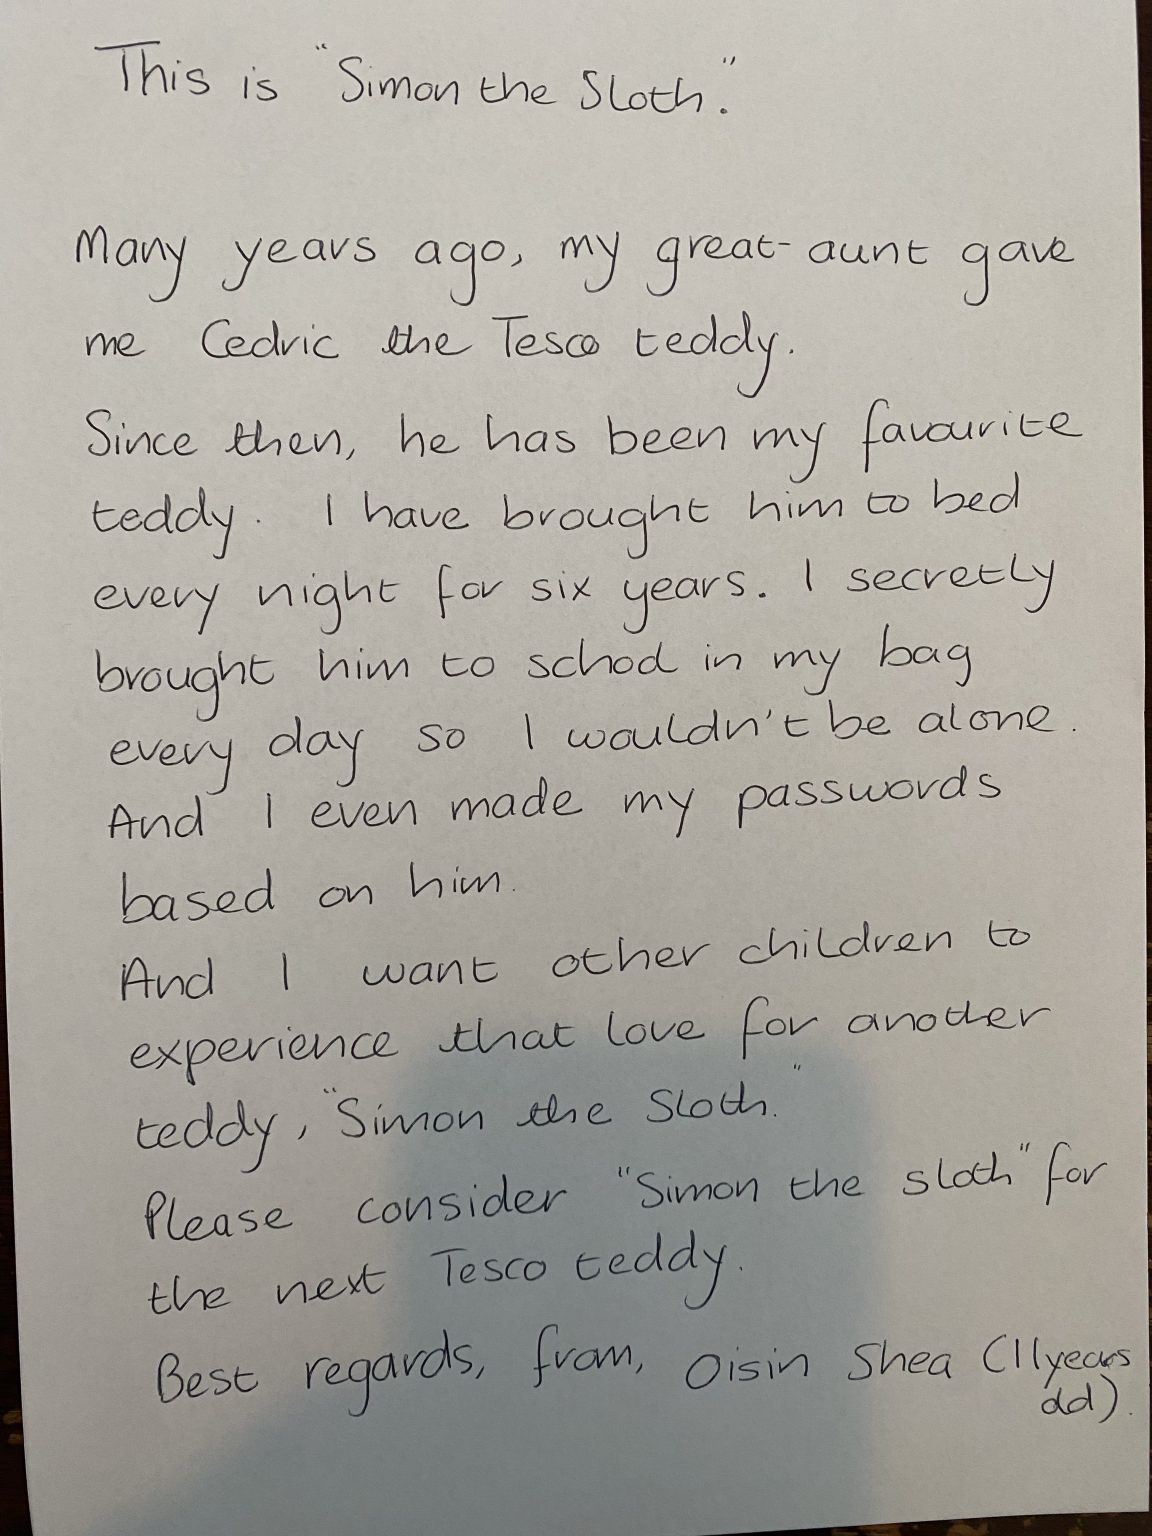 This is "Simon the Sloth."
Many years ago, my great-aunt gave
me Cedric the Tesco teddy.
Since then, he has been my favourite
teddy. I have brought him to bed
every night for six years. I secretly
brought him to school in my bag
every day so I wouldn't be alone.
And I even made my passwords
based on him.
And I want other children to
experience that love for another
teddy, "Simon the Sloth."
Please consider "Simon the sloth" for
the next Tesco teddy.
Best regards, from, Oisin Shea (11 years
old).